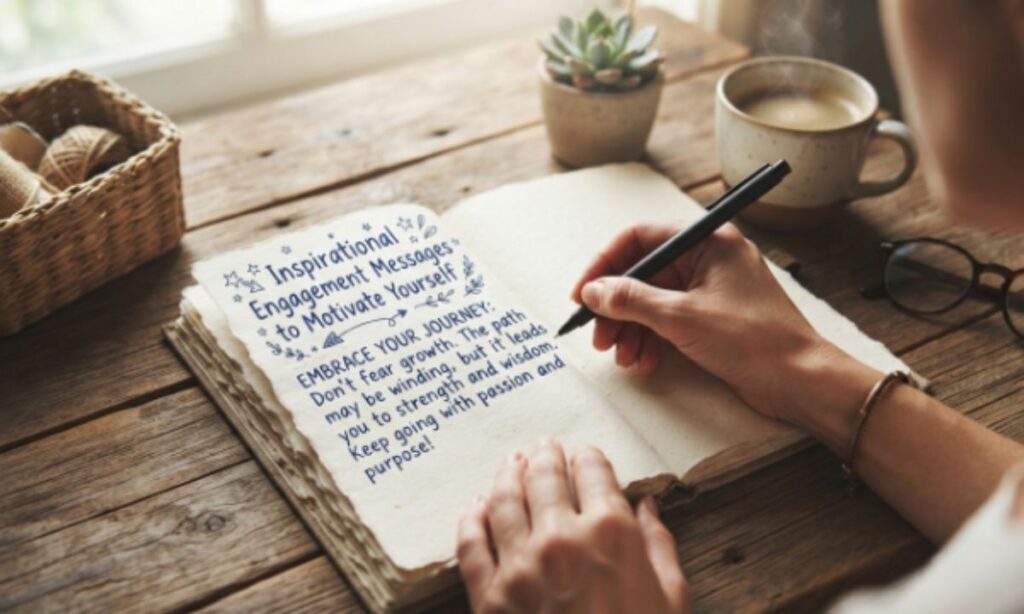 Inspirational
Engagement Messages
to Motivate Yourself
EMBRACE YOUR JOURNEY:
Don't fear growth. The path
may be winding, but it leads
you to strength and wisdom.
Keep going with passion and
purpose!